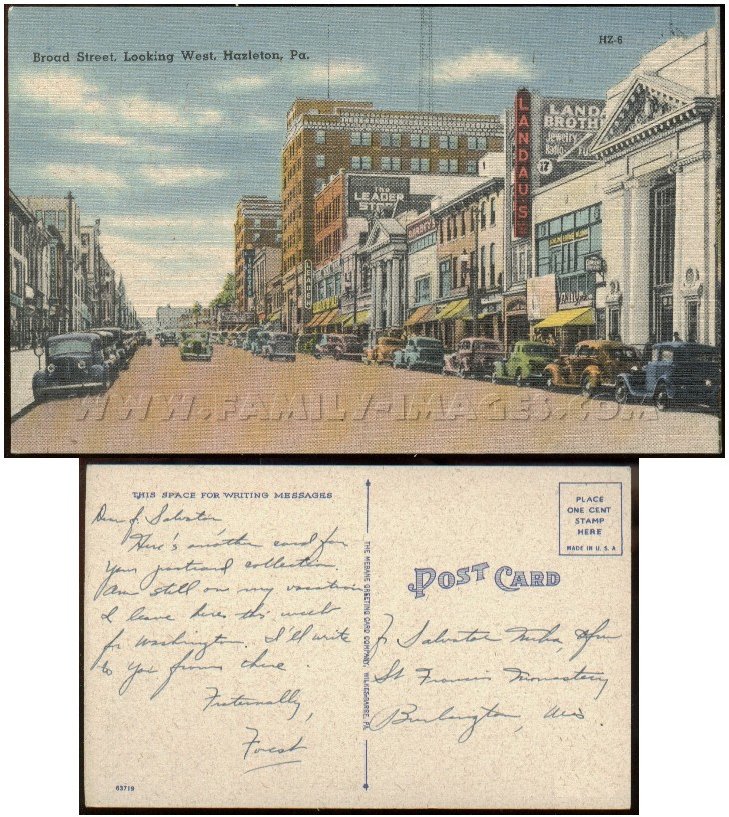 Broad Street, Looking West, Hazleton, Pa.
HZ-6
LANDAU'S
LANDAU
BROTHERS
Jewelry
Radio
17
The
LEADER
STORE
WWW.FAMILY-IMAGES.COM
THIS SPACE FOR WRITING MESSAGES
Dear f. Salvator,
Here's another card for
your postcard collection.
Am still on my vacation
I leave here this week
for Washington. I'll write
to you from there.
Fraternally,
Forest
63719
THE MEBANE GREETING CARD COMPANY, WILKES-BARRE, PA.
PLACE
ONE CENT
STAMP
HERE
MADE IN U.S.A
POST CARD
f. Salvator
St Francis Monastery
Burlington, Wis